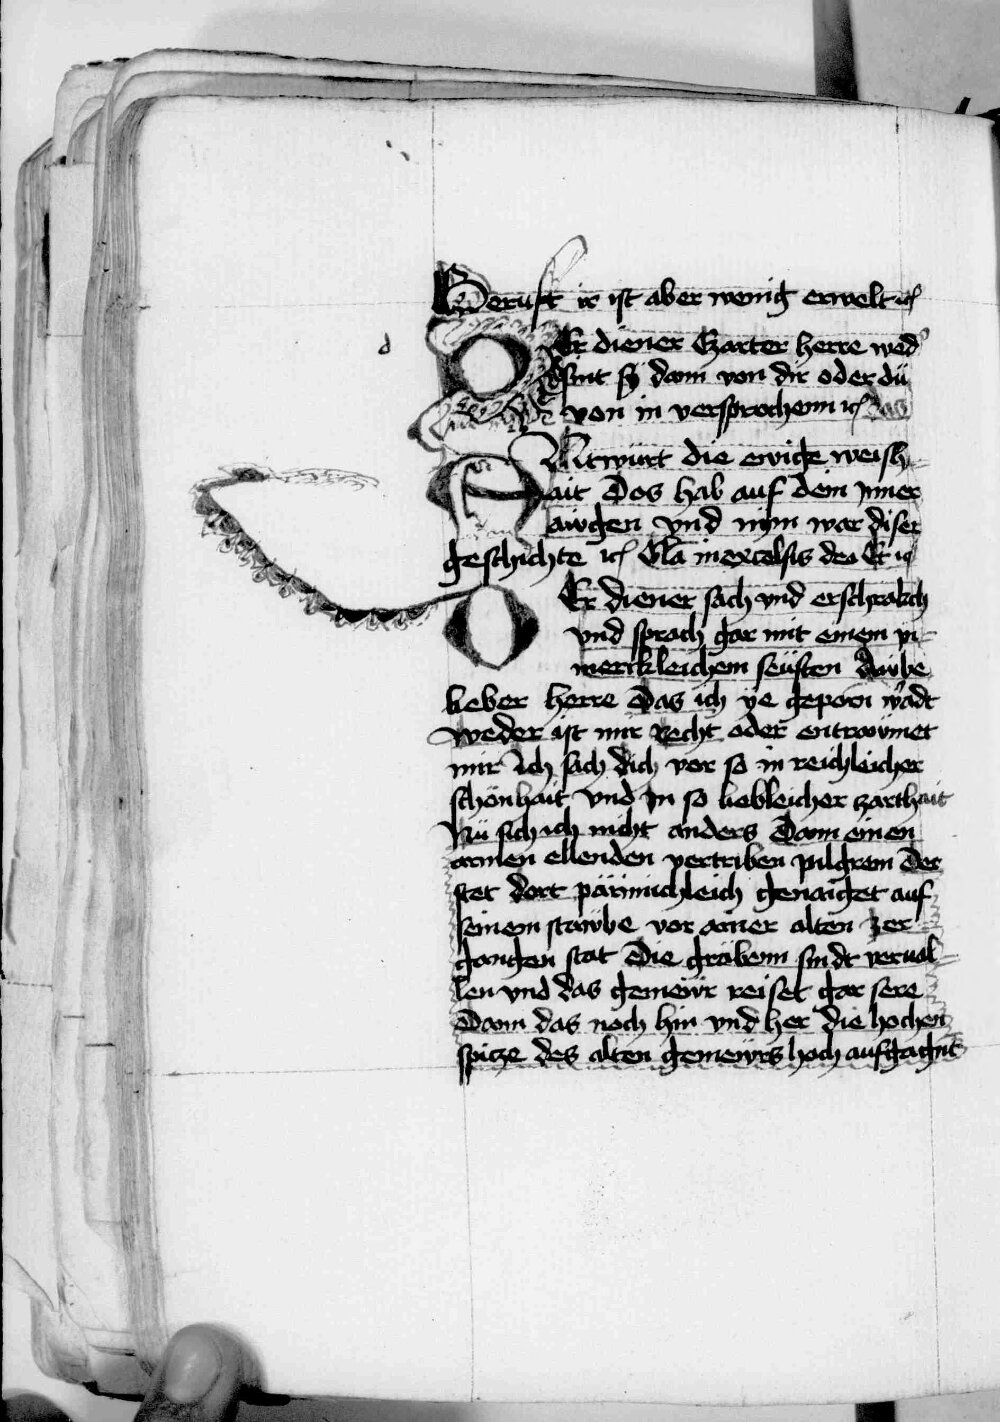 Beruft ir ist aber wenig erwelt ꝛc
d
DEr diener Czarter herre wed'
sint sy dann von dir oder dü
von in versprochenn ꝛc das
ANtwürt die ewige weish-
ait Dos hab auf dein Jnner
awgen vnd nym war diser
geschichte ꝛc Gla in excelsis deo Er ꝛc
DEr diener sach vnd erschrakch
vnd sprach gar mit einem yn-
nerckleichem seüften Awbe
lieber herre Das ich ye geporn wadt
weder ist mir Recht oder entrawmet
mir Ich sach dich vor so in reichleicher
schönhait Vnd Jn so liebleicher zarthait
Nü sich ich nicht anders Dann einen
armen ellenden vertriben pilgrem Der
stet dort pärmichleich genaiget auf
seinem stawbe vor ainer alten zer-
gangen stat Die grabenn sindt verual-
len vnd das gemewr reiset gar sere
Dann das noch hin vnd her die hochen
spicze des alten gemewrs hoch aufgagnt